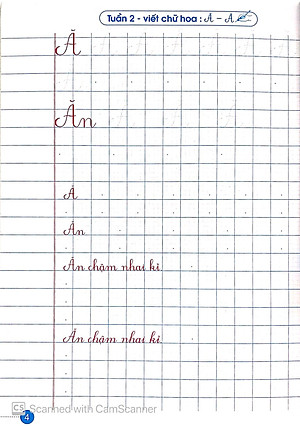 Tuần 2 - viết chữ hoa : Ă - Â
Ă
Ăn
Ă
Ăn
Ăn chậm nhai kĩ
Ăn chậm nhai kĩ
CS Scanned with CamScanner
4